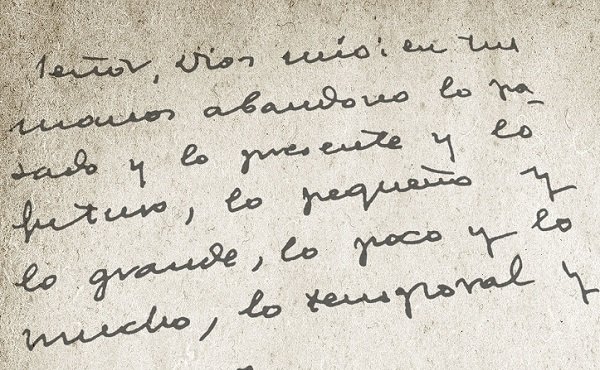 Señor, Dios mío: en tus
manos abandono lo pa-
sado y lo presente y lo
futuro, lo pequeño y
lo grande, lo poco y lo
mucho, lo temporal y